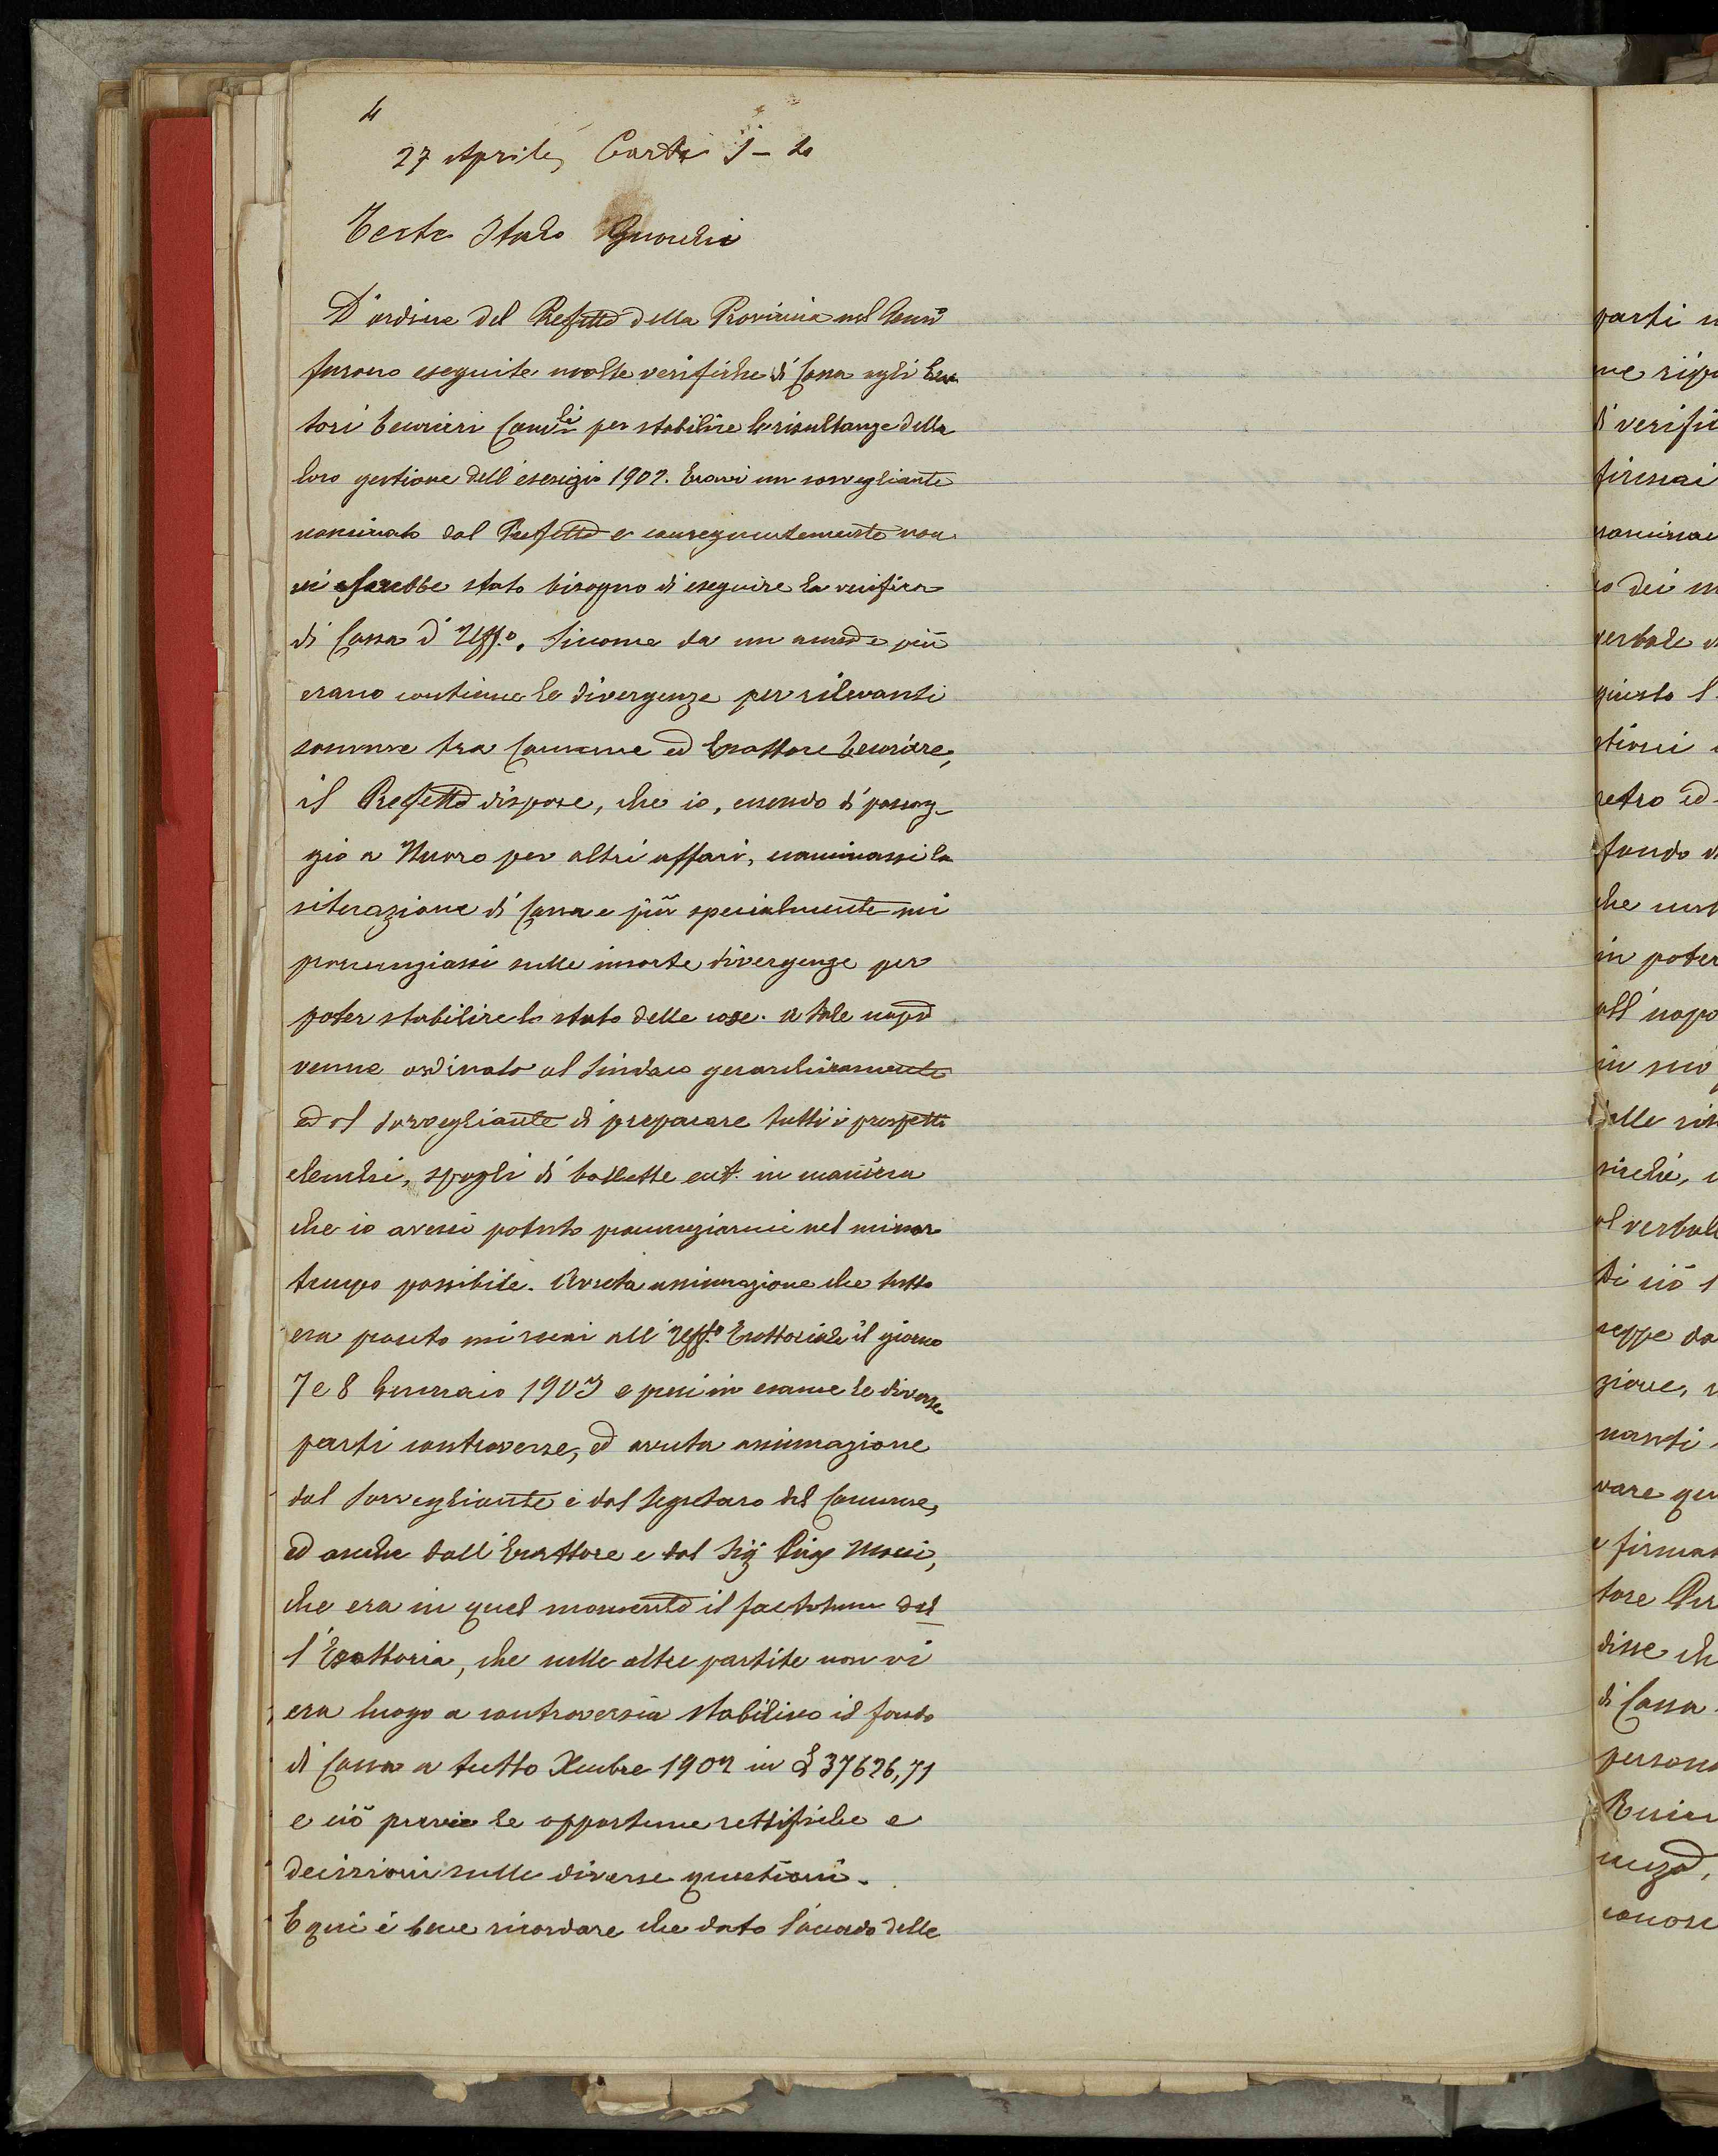 4
27 Aprile, Carta 1 - 20
Teste Italo
D'ordine del Prefetto della Provincia nel
furono eseguite molte verifiche di Cassa agli Esat
tori tesorieri Com.li per stabilire le risultanze della
loro gestione dell'esercizio 1902. Eravi un sorvegliante
nominato dal Prefetto e conseguentemente non
vi sarebbe stato bisogno di eseguire la verifica
di Cassa d'Uff.o. Siccome da un anno e più
erano continue le divergenze per rilevanti
somme tra Comune ed Esattore tesoriere,
il Prefetto dispose, che io, essendo di passag-
gio a Nuoro per altri affari, esaminassi la
situazione di Cassa e più specialmente mi
pronunziassi sulle insorte divergenze per
poter stabilire lo stato delle cose. A tale uopo
venne ordinato al Sindaco gerarchicamente
ed al sorvegliante di preparare tutti i prospetti
elenchi, spogli di bollette ect. in maniera
che io avessi potuto pronunziarmi nel minor
tempo possibile. Avuta assicurazione che tutto
era pronto mi recai all'Uff.o Esattoriale il giorno
7 e 8 Gennaio 1903 e presi in esame le diverse
parti controverse, ed avuta assicurazione
dal sorvegliante e dal segretaro del Comune,
ed anche dall'Esattore e dal Sig Pirg Mossi,
che era in quel momento il factotum del
l'Esattoria, che nelle altre partite non vi
era luogo a controversia stabilivo il fondo
di Cassa a tutto Xembre 1902 in £ 37626,71
e ciò previe le opportune rettifiche e
decisioni sulle diverse questioni.
E qui è bene ricordare che dato l'accordo delle
parti
me
di verifi
firmai
nomina
io dei
verbale
questo l
stioni
retro ed
fondo
che
in poter
all'uopo
in suo
delle
sichè,
al verbale
Di ciò
seppe da
zione,
nanti
vare
e firmat
tore
disse ch
di Cassa
person
conosc